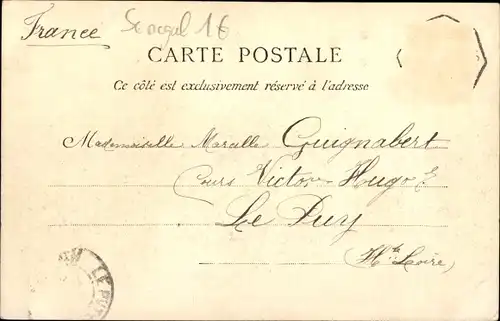 France
Senegal 16
CARTE POSTALE
Ce côté est exclusivement réservé à l'adresse
Mademoiselle Marcelle Guignabert
Cours Victor Hugo
Le Puy
(Hte Loire)
LE PUY